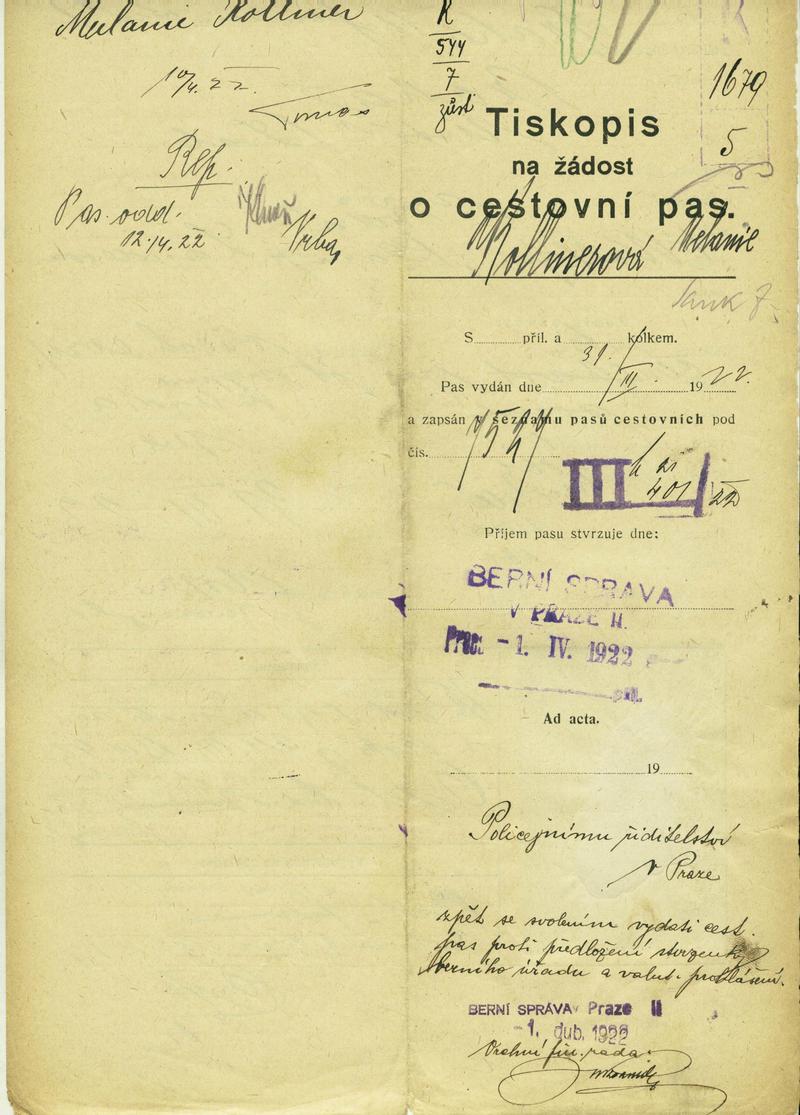 Melanie Kollmer
10/4. 22.
Rep.
Pas. odd.
12.14.22 Vrba
K
544
7
zúst
1679
5
Tiskopis
na žádost
o cestovní pas.
Kollmerová Melanie
S příl. a kolkem.
31.
Pas vydán dne III. 1922.
a zapsán v seznamu pasů cestovních pod
čís.
III
401/22
Příjem pasu stvrzuje dne:
BERNÍ SPRÁVA
V PRAZE II.
Praes. - 1. IV. 1922
příl.
Ad acta.
19
Policejnímu ředitelství
v Praze
zpět se svolením vydati cest.
pas proti předložení stvrzenky
berního úřadu a valut. prohlášení.
BERNÍ SPRÁVA v Praze II
- 1. dub. 1922
Vrchní fin. rada: